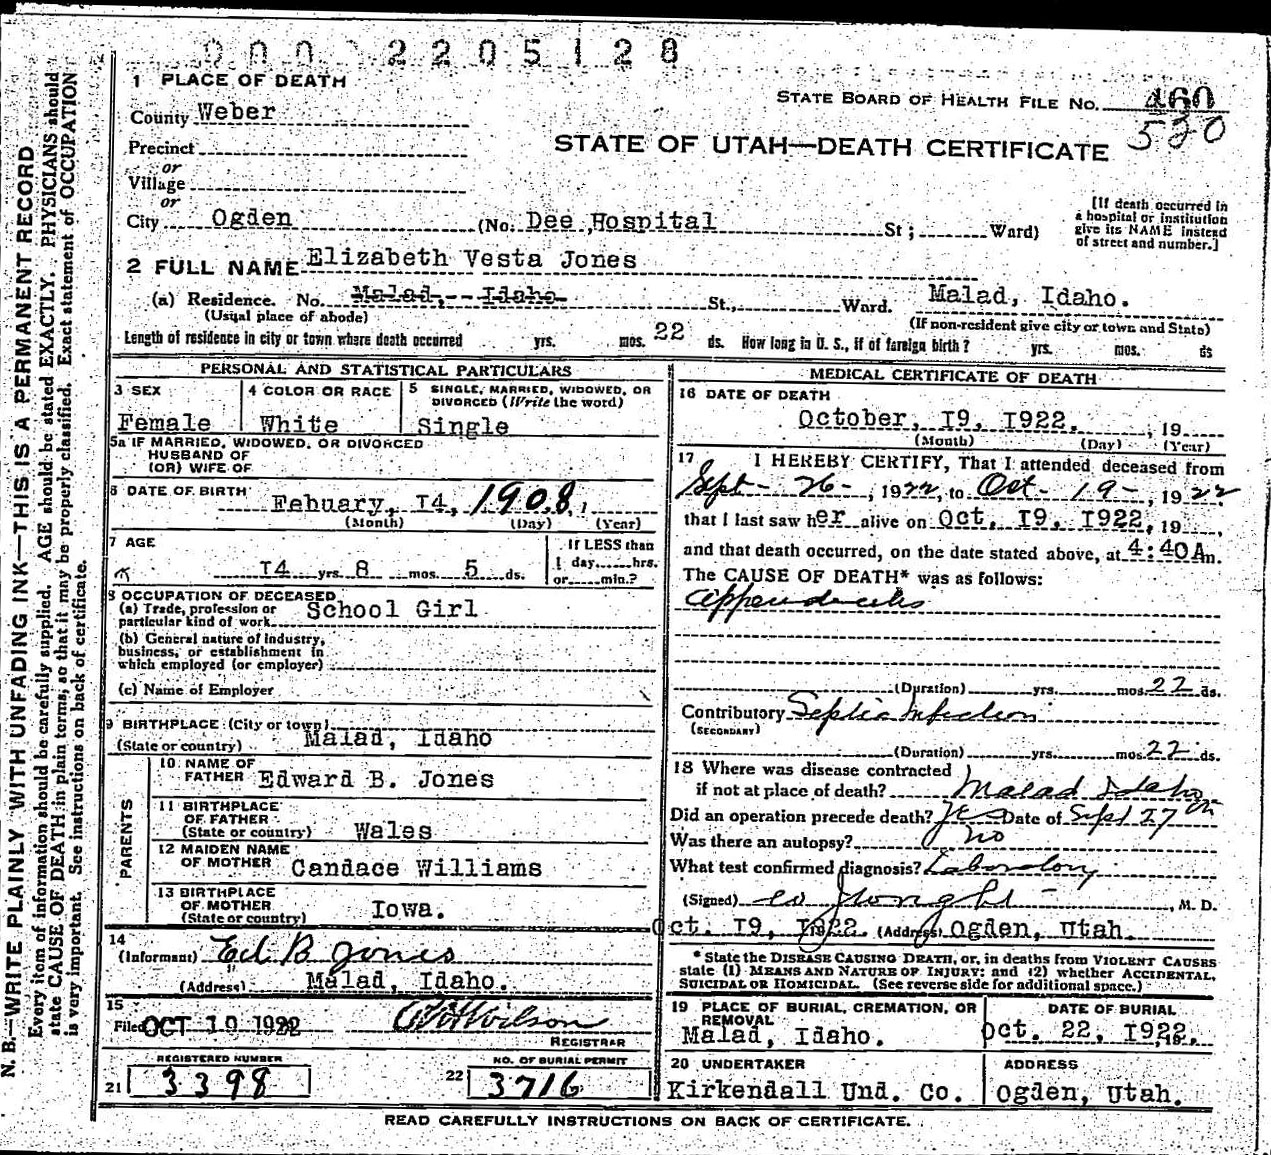 000 2205128
1 PLACE OF DEATH
STATE BOARD OF HEALTH FILE NO. 460
530
County Weber
STATE OF UTAH—DEATH CERTIFICATE
Precinct
or
Village
or
City Ogden (No. Dee Hospital St; Ward)
[If death occurred in
a hospital or institution
give its NAME instead
of street and number.]
2 FULL NAME Elizabeth Vesta Jones
(a) Residence. No. Malad, Idaho St., Ward. Malad, Idaho.
(Usual place of abode) (If non-resident give city or town and State)
Length of residence in city or town where death occurred yrs. mos. 22 ds. How long in U. S., if of foreign birth? yrs. mos. ds
PERSONAL AND STATISTICAL PARTICULARS
3 SEX
Female
4 COLOR OR RACE
White
5 SINGLE, MARRIED, WIDOWED, OR
DIVORCED (Write the word)
Single
5a IF MARRIED, WIDOWED, OR DIVORCED
HUSBAND OF
(OR) WIFE OF
6 DATE OF BIRTH Febuary, I4, 1908,
(Month) (Day) (Year)
7 AGE
I4 yrs. 8 mos. 5 ds.
If LESS than
1 day, hrs.
or min.?
8 OCCUPATION OF DECEASED
(a) Trade, profession or
particular kind of work School Girl
(b) General nature of industry,
business, or establishment in
which employed (or employer)
(c) Name of Employer
9 BIRTHPLACE (City or town)
(State or country) Malad, Idaho
PARENTS
10 NAME OF
FATHER Edward B. Jones
11 BIRTHPLACE
OF FATHER
(State or country) Wales
12 MAIDEN NAME
OF MOTHER Candace Williams
13 BIRTHPLACE
OF MOTHER
(State or country) Iowa.
14
(Informant) Ed B Jones
(Address) Malad, Idaho.
15
Filed OCT 19 1922
REGISTRAR
REGISTERED NUMBER
21 3398
NO. OF BURIAL PERMIT
22 3716
MEDICAL CERTIFICATE OF DEATH
16 DATE OF DEATH
October, I9, I922. , 19
(Month) (Day) (Year)
17 I HEREBY CERTIFY, That I attended deceased from
Sept - 26 - , 1922, to Oct - 19 - , 1922
that I last saw her alive on Oct, I9, I922, 19 ,
and that death occurred, on the date stated above, at 4:40A m.
The CAUSE OF DEATH* was as follows:
appendicitis
(Duration) yrs. mos. 22 ds.
Contributory Septic Infection
(SECONDARY)
(Duration) yrs. mos. 22 ds.
18 Where was disease contracted
if not at place of death? Malad Idaho
Did an operation precede death? Yes Date of Sept 27
Was there an autopsy? no
What test confirmed diagnosis? Laboratory
(Signed) , M. D.
Oct. I9, I922. (Address) Ogden, Utah.
* State the DISEASE CAUSING DEATH, or, in deaths from VIOLENT CAUSES
state (1) MEANS AND NATURE OF INJURY: and (2) whether ACCIDENTAL,
SUICIDAL OR HOMICIDAL. (See reverse side for additional space.)
19 PLACE OF BURIAL, CREMATION, OR
REMOVAL
Malad, Idaho.
DATE OF BURIAL
Oct. 22, I922, 19
20 UNDERTAKER
Kirkendall Und. Co.
ADDRESS
Ogden, Utah.
READ CAREFULLY INSTRUCTIONS ON BACK OF CERTIFICATE.
N. B.—WRITE PLAINLY WITH UNFADING INK—THIS IS A PERMANENT RECORD
Every item of information should be carefully supplied. AGE should be stated EXACTLY. PHYSICIANS should
state CAUSE OF DEATH in plain terms, so that it may be properly classified. Exact statement of OCCUPATION
is very important. See instructions on back of certificate.